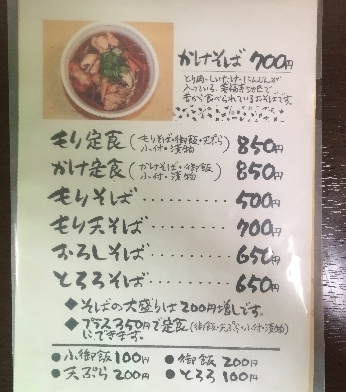 かけそば 700円
とり肉・しいたけ・にんじんが
入っている
昔から食べられているおそばです。
もり定食(もりそば・御飯・天ぷら 小付・漬物) 850円
かけ定食(かけそば・御飯 小付・漬物) 850円
もりそば………… 500円
もり天そば……… 700円
おろしそば……… 650円
とろろそば……… 650円
◆そばの大盛りは200円増しです。
◆プラス350円で定食(御飯・天ぷら・小付・漬物)
にできます。
●小御飯100円 ●御飯200円
●天ぷら200円 ●とろろ100円